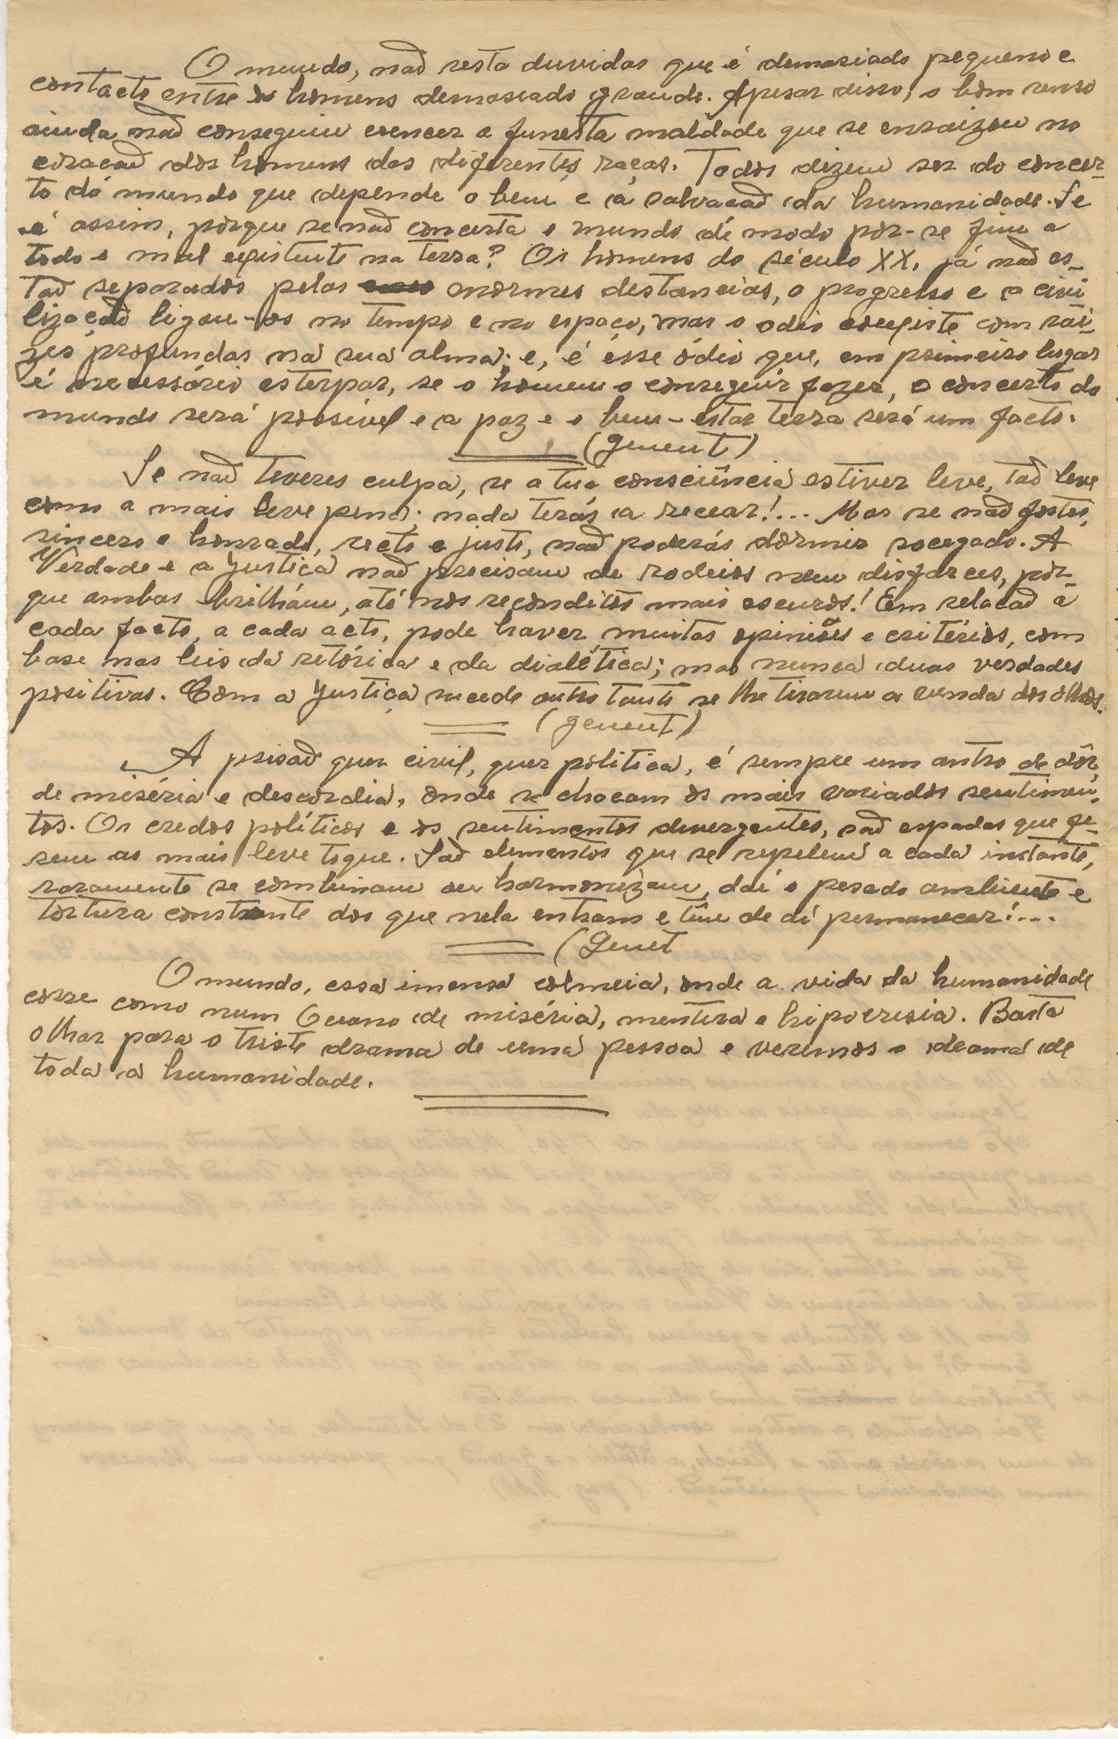 O mundo, naõ resta duvidas que é demasiado pequeno e
contacto entre os homens demasiado grande. Apesar disso, o bom senso
ainda naõ conseguiu vencer a funesta maldade que se enraizou no
coracaõ dos homens das diferentes raças. Todos dizem ser do concer-
to do mundo que depende o bem e a salvacaõ da humanidade. Se
é assim, porque se naõ concerta o mundo de modo pôr-se fim a
todo o mal existente na terra? Os homens do século XX, já naõ es-
taõ separados pelas enormes distancias, o progresso e a civi
lizacaõ ligou-os no tempo e no espaço, mas o odio coexiste com raí-
zes profundas na sua alma; e, é ésse ódio que, em primeiro lugar
é necessário esterpar, se o homem o conseguir fazer, o concerto do
mundo será possivel e a paz e o bem-estar terra será um facto.
(Genent)
Se naõ tiveres culpa, se a tua consciência estiver leve, taõ leve
como a mais leve pena; nada terás a recear!... Mas se naõ fostes,
sincero e honrado, recto e justo, naõ poderás dormir socegado. A
Verdade e a Justiça naõ precisam de rodeios nem disfarces, por-
que ambas brilham, até nos reconditos mais escuros! Em relacaõ á
cada facto, a cada acto, pode haver muitas opiniões e critérios, com
base nas leis da retórica e da dialética; mas nunca duas verdades
positivas. Com a Justiça sucede outro tanto se lhe tirarem a venda dos olhos.
(genent)
A prisaõ quer civil, quer politica, é sempre um antro de dôr,
de miséria e descordia, onde se chocam os mais variados sentimen-
tos. Os credos políticos e os sentimentos divergentes, saõ espadas que fe-
rem ao mais leve toque. Saõ elementos que se repelem a cada instante,
raramente se combinam ou harmonizam, daí o pesado ambiente e
tortura constante dos que nela entram e têm de aí permanecer!...
(Genet
O mundo, essa imensa colmeia, onde a vida da humanidade
corre como num Oceano de miséria, mentira e hipocrisia. Basta
olhar para o triste drama de uma pessoa e veremos o drama de
toda a humanidade.